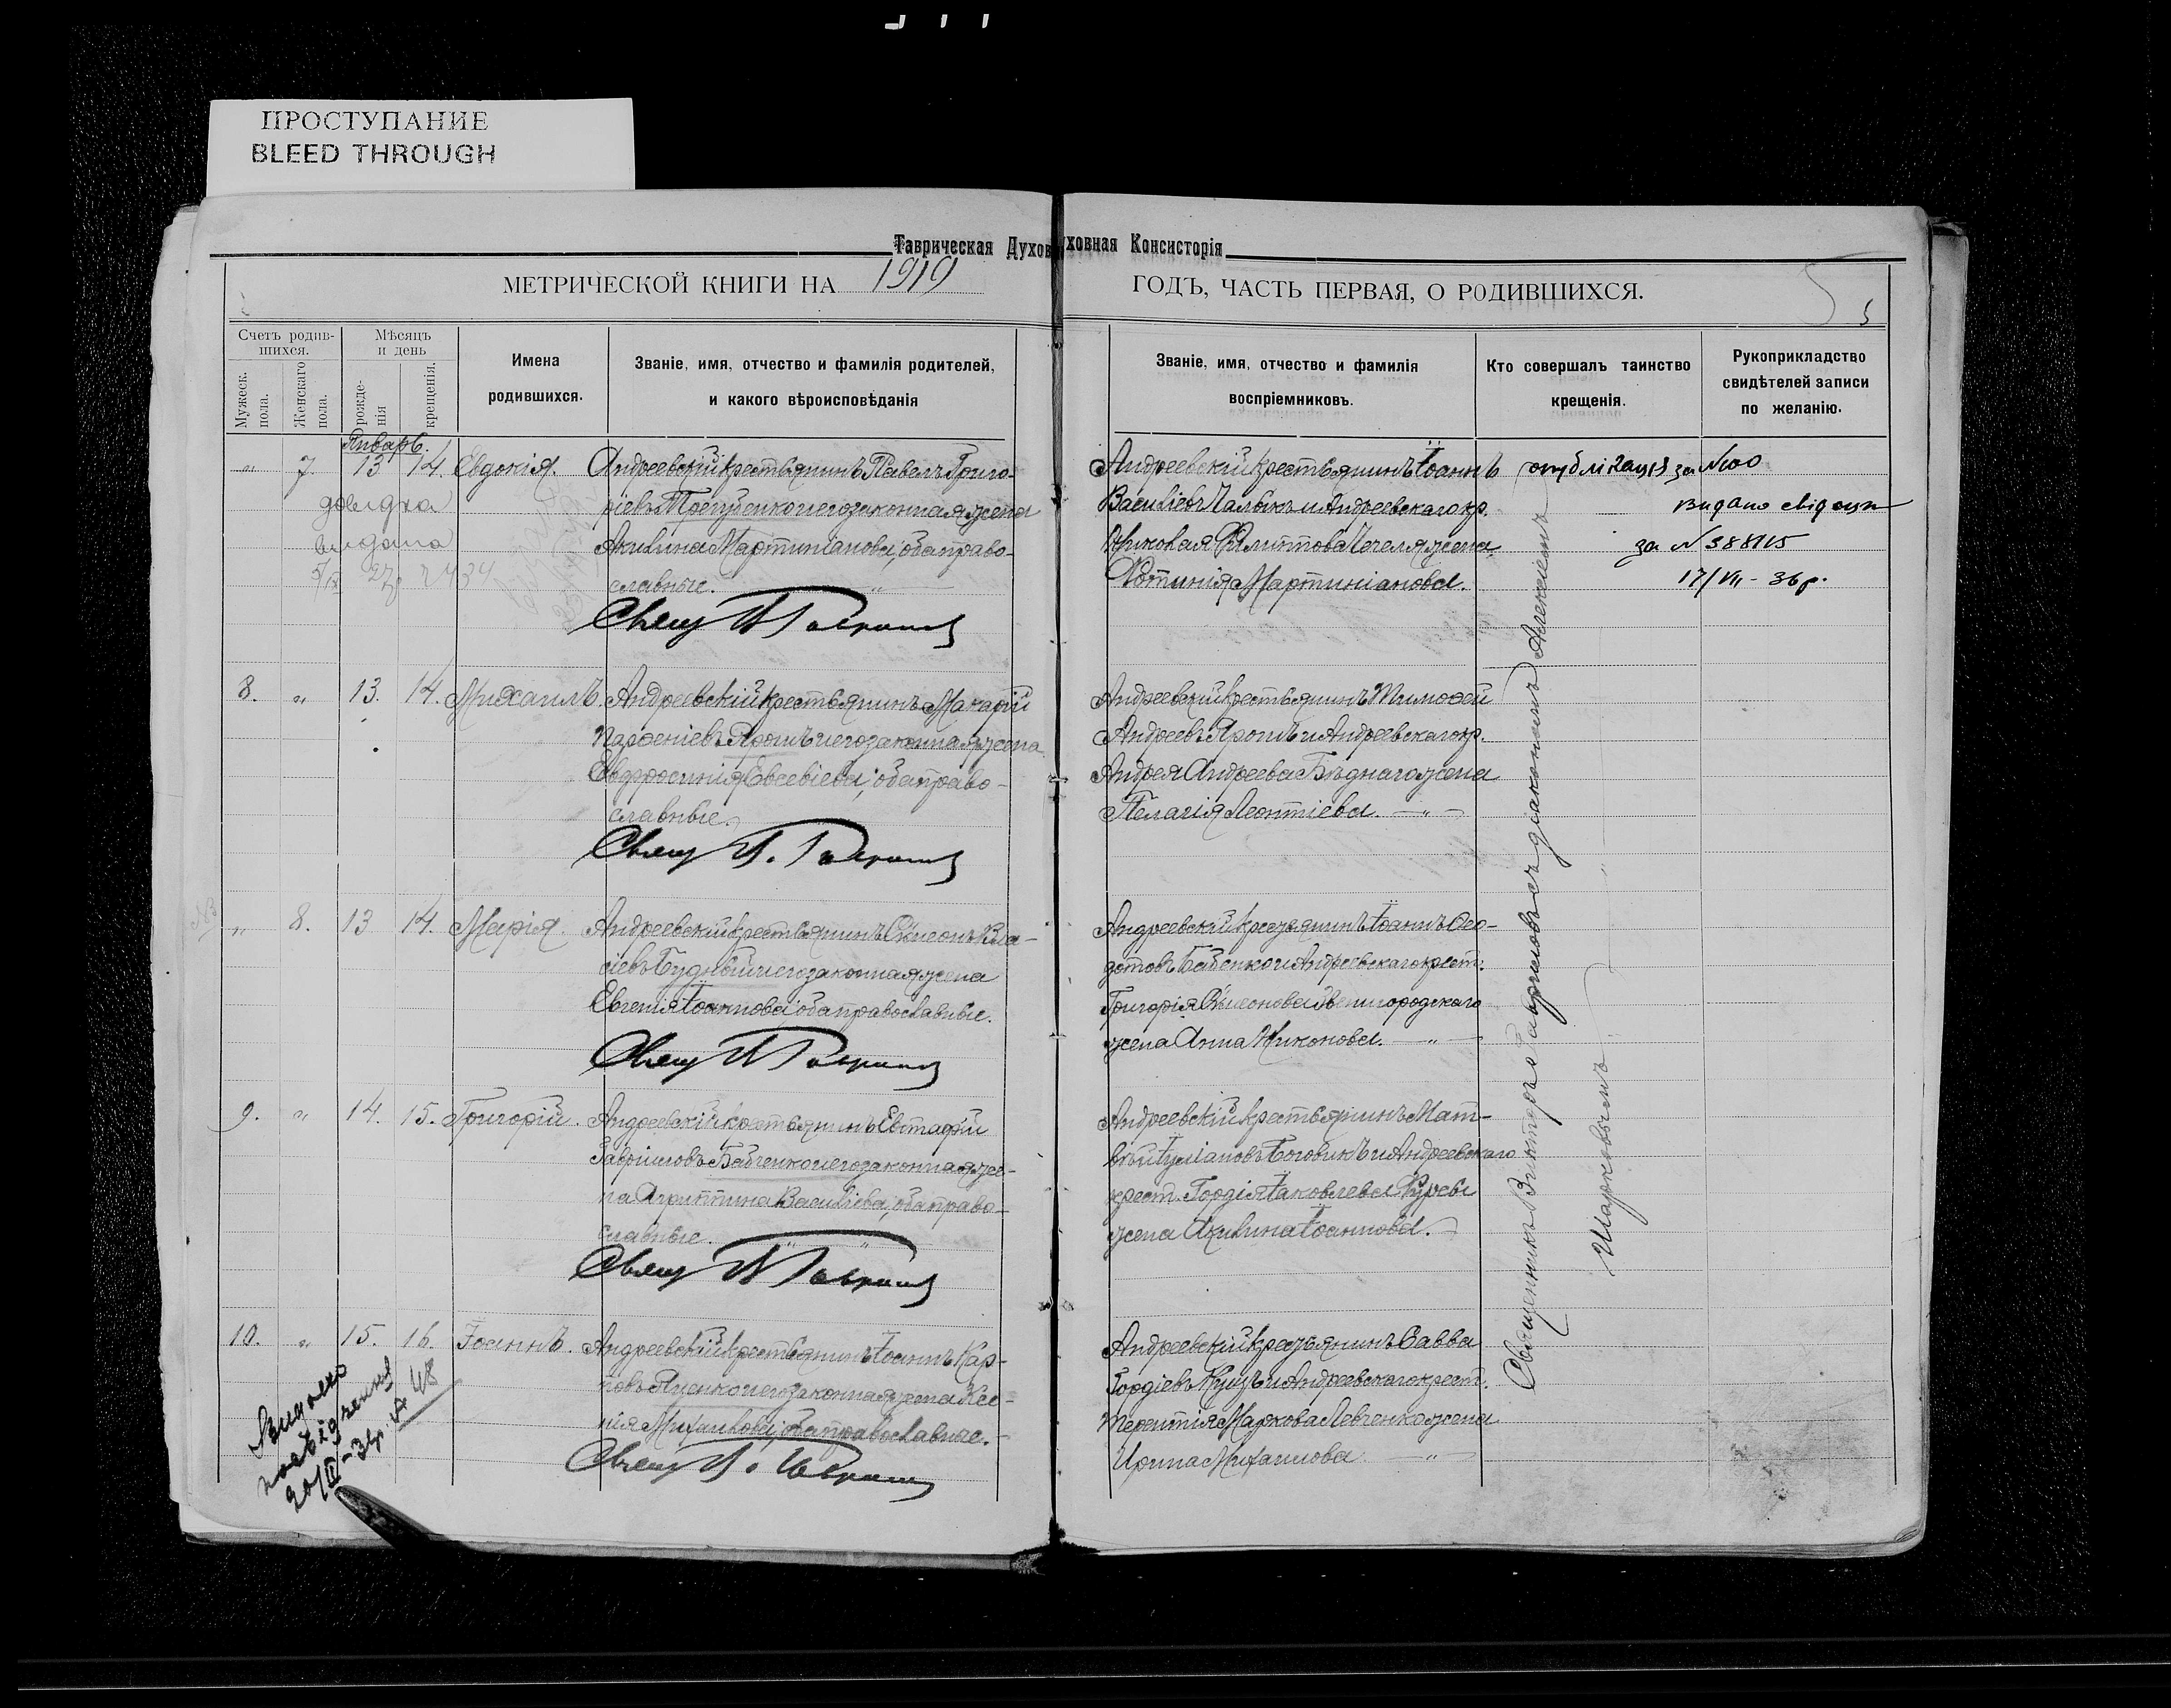 ПРОСТУПАНИЕ
BLEED THROUGH
Таврическая Духовная Консисторія
МЕТРИЧЕСКОЙ КНИГИ НА 1919 ГОДЪ, ЧАСТЬ ПЕРВАЯ, О РОДИВШИХСЯ.
5 5
Счетъ родив-
шихся.
Мужеск.
пола.
Женскаго
пола.
Мѣсяцъ
и день
рожде-
нія
крещенія.
Имена
родившихся.
Званіе, имя, отчество и фамилія родителей,
и какого вѣроисповѣданія
Званіе, имя, отчество и фамилія
воспріемниковъ.
Кто совершалъ таинство
крещенія.
Рукоприкладство
свидѣтелей записи
по желанію.
Январь.
" 7. 13 14. Евдокія.
Андреевскій крестьянинъ Павелъ Григо-
ріевъ и его законная жена
Акилина Мартиніанова, оба право-
славные. "
Свящ В Гаврилов
видана
Андреевскій крестьянинъ Іоаннъ
Василіевъ и Андреевскаго кр.
Николая Филиппова жена
Фотинія Мартиніанова.
за №100
видано свідоцт
за № 388115
17/VII - 36 р.
8. " 13. 14. Михаилъ.
Андреевскій крестьянинъ Макарій
Парѳеніевъ Ярошъ и его законная жена
Евфросинія Евсевіева, оба право-
славные.
Свящ В. Гаврилов
Андреевскій крестьянинъ Тимоѳей
Андреевъ Ярошъ и Андреевскаго кр.
Андрея Андреева Бѣднаго жена
Пелагія Леонтіева. — " —
" 8. 13 14. Марія.
Андреевскій крестьянинъ Симеонъ Вла-
сіевъ Будный и его законная жена
Евгенія Іоаннова, оба православные.
Свящ В Гаврилов
Андреевскій крестьянинъ Іоаннъ Ѳео-
дотовъ Бабенко и Андреевскаго крест.
Григорія Симеонова Звенигородскаго
жена Анна Никонова. — " —
9. " 14. 15. Григорій.
Андреевскій крестьянинъ Евстафій
Гавріиловъ Бабченко и его законная же-
на Агриппина Василіева, оба право-
славные. " "
Свящ В Гаврилов
Андреевскій крестьянинъ Мат-
вѣй Іуліановъ Боговикъ и Андреевскаго
крест. Гордія Іаковлева жена Акилина Іоаннова.
10. " 15. 16. Іоаннъ.
Андреевскій крестьянинъ Іоаннъ Кар-
повъ и его законная жена Ксе-
нія Михаилова, оба православные.
Свящ В. Гаврилов
Андреевскій крестьянинъ Савва
Гордіевъ Куцъ и Андреевскаго крест.
Терентія Маркова Левченко жена
Ирина Михаилова — " —
№ 48
Священникъ Викторъ Гавриловъ съ діакономъ Алексіемъ
Шарковымъ